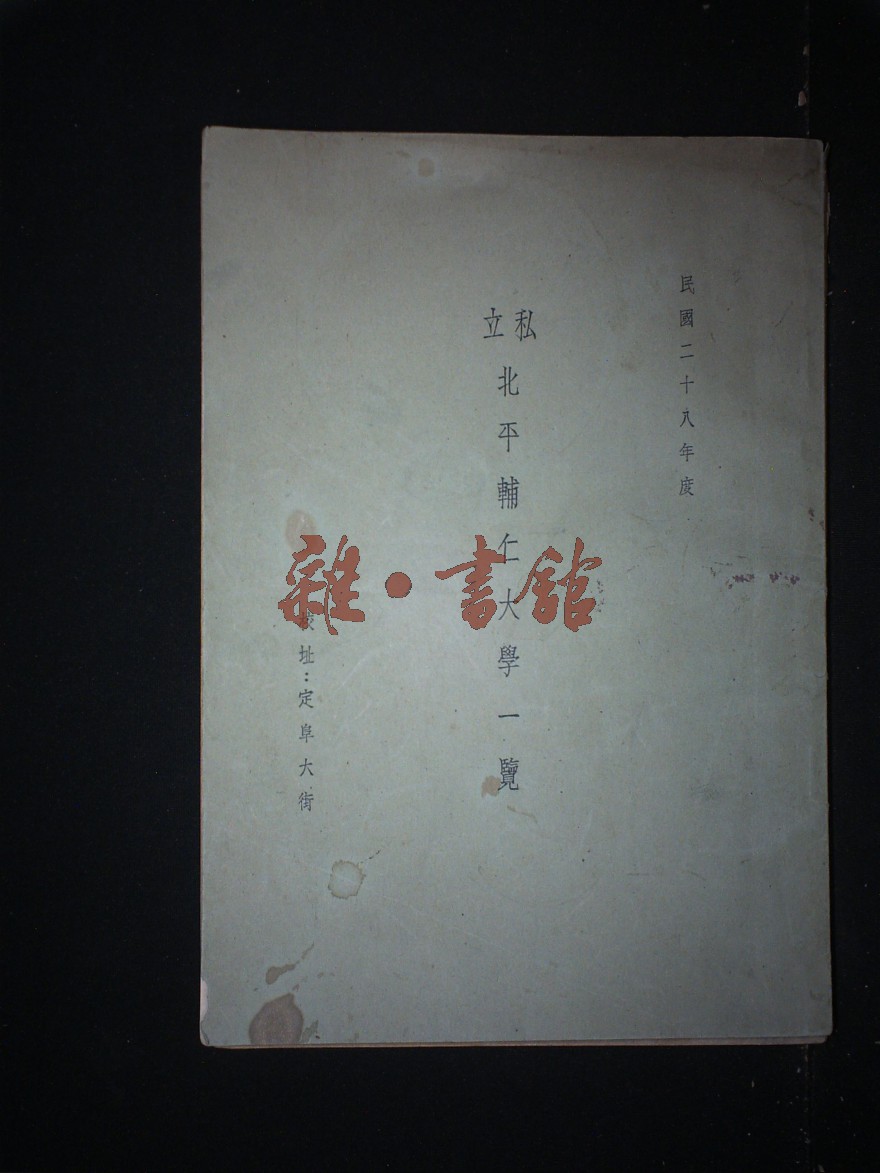 民國二十八年度
私立北平輔仁大學一覽
校址：定阜大街
雜·書館